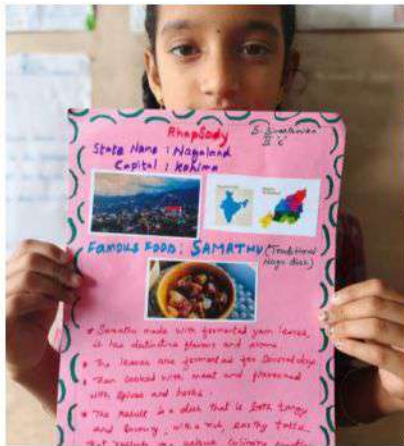 Rhapsody
II 'C'
State Name : Nagaland
Capital : Kohima
FAMOUS FOOD : SAMATHU (Traditional
Naga dish)
* Samathu made with fermented yam leaves,
it has distinctive flavour and aroma
* The leaves are fermented for several days
* Then cooked with meat and flavoured
with spices and herbs.
* The result is a dish that is both tangy
and savoury, with a rich, earthy taste
that reflects the culinary